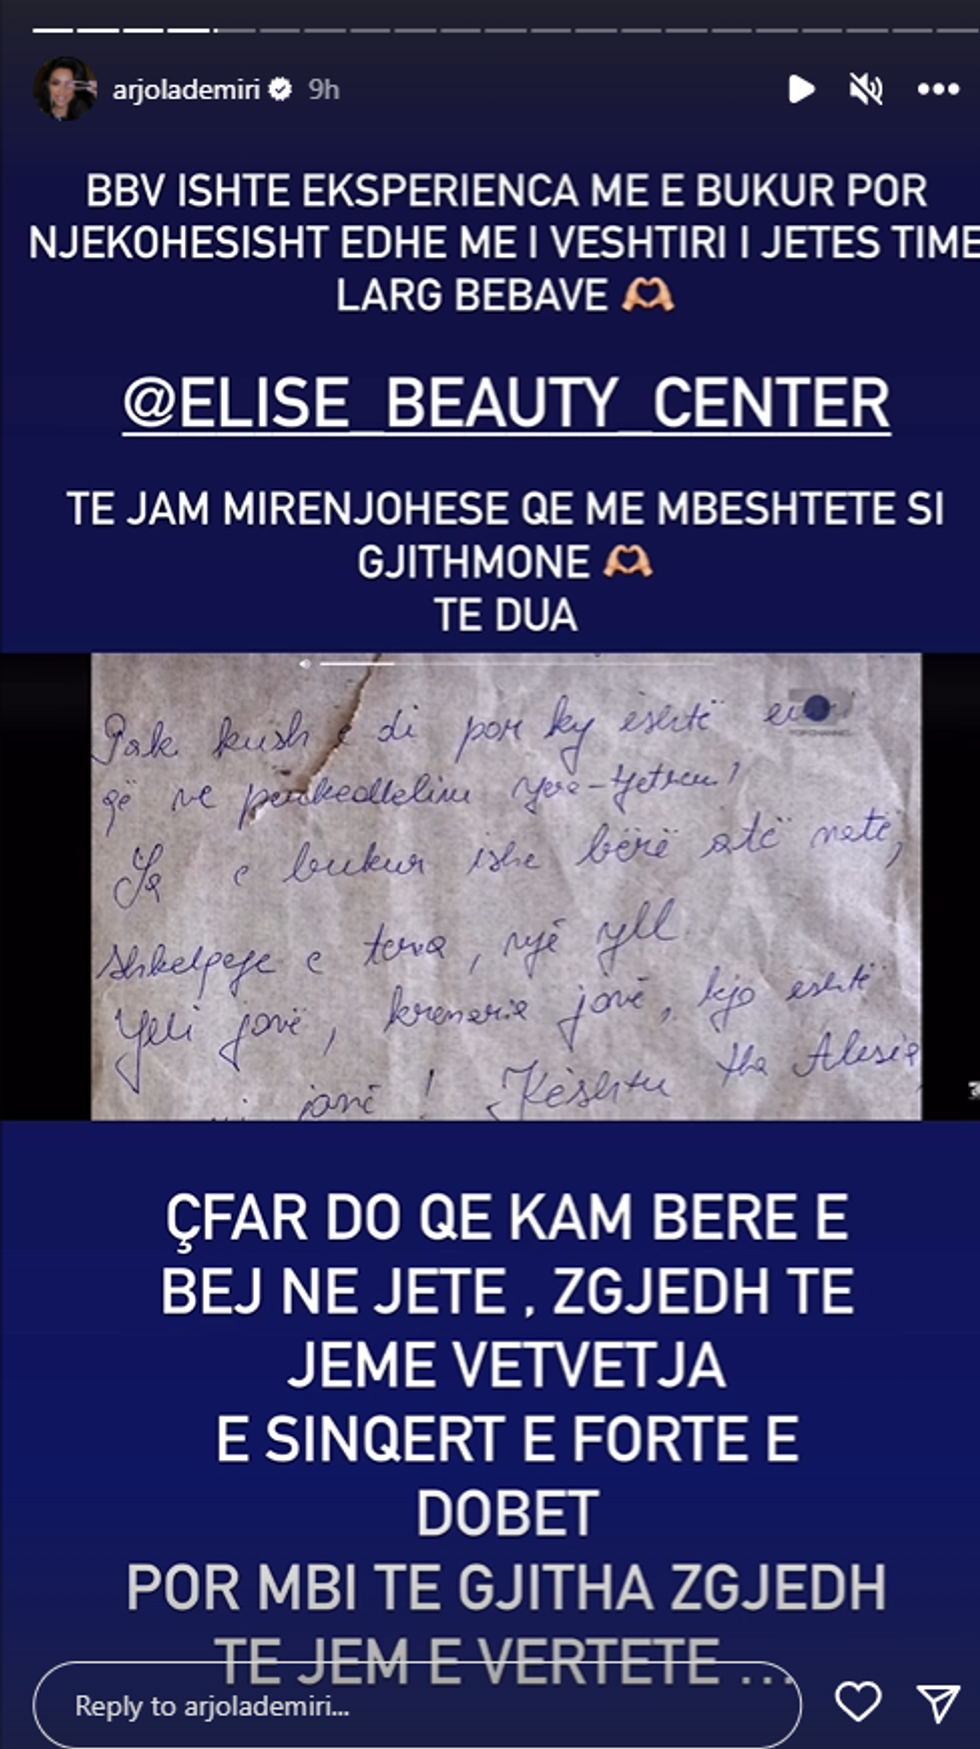 arjolademiri 9h
BBV ISHTE EKSPERIENCA ME E BUKUR POR
NJEKOHESISHT EDHE ME I VESHTIRI I JETES TIME
LARG BEBAVE 🫶🏼
@ELISE_BEAUTY_CENTER
TE JAM MIRENJOHESE QE ME MBESHTETE SI
GJITHMONE 🫶🏼
TE DUA
Pak kush e di por ky është
që ne përkëdhelim njëra-tjetrën!
Sa e bukur ishe bërë atë natë,
shkelqeje e tëra, një yll
Ylli jonë, krenaria jonë, kjo është
jonë! Kështu tha Alesia
ÇFAR DO QE KAM BERE E
BEJ NE JETE , ZGJEDH TE
JEME VETVETJA
E SINQERT E FORTE E
DOBET
POR MBI TE GJITHA ZGJEDH
TE JEM E VERTETE ...
Reply to arjolademiri...